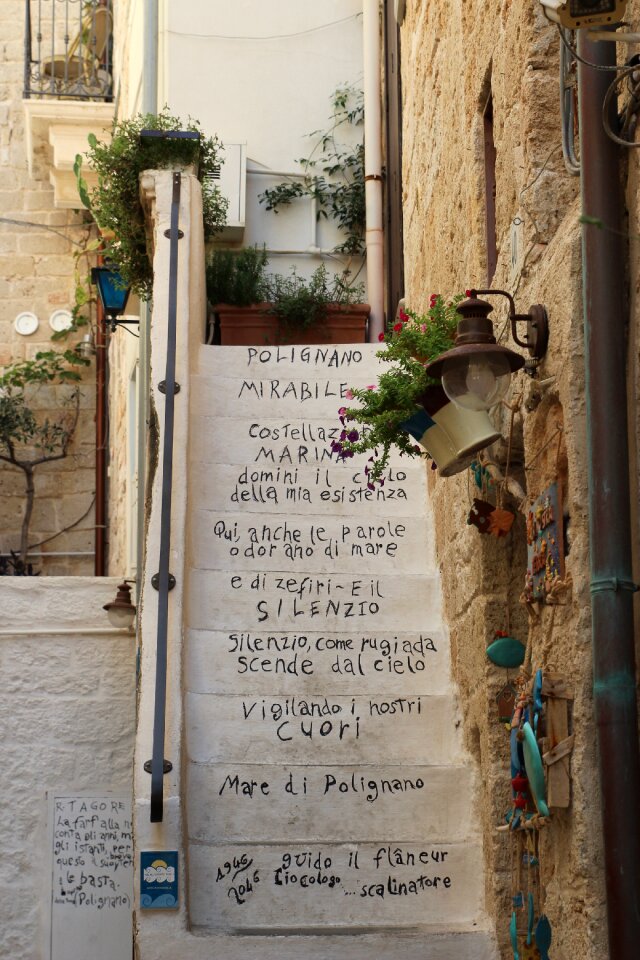 POLIGNANO
MIRABILE
Costellaz
MARINA
domini il cielo
della mia esistenza
Qui, anche le parole
odorano di mare
e di zefiri - E il
SILENZIO
Silenzio, come rugiada
scende dal cielo
Vigilando i nostri
CUORI
Mare di Polignano
1946
2046
guido il flâneur
...scalinatore
R. TAGORE
La farfalla n
conta gli anni, m
gli istanti, per
questo il suo
basta.
Polignano